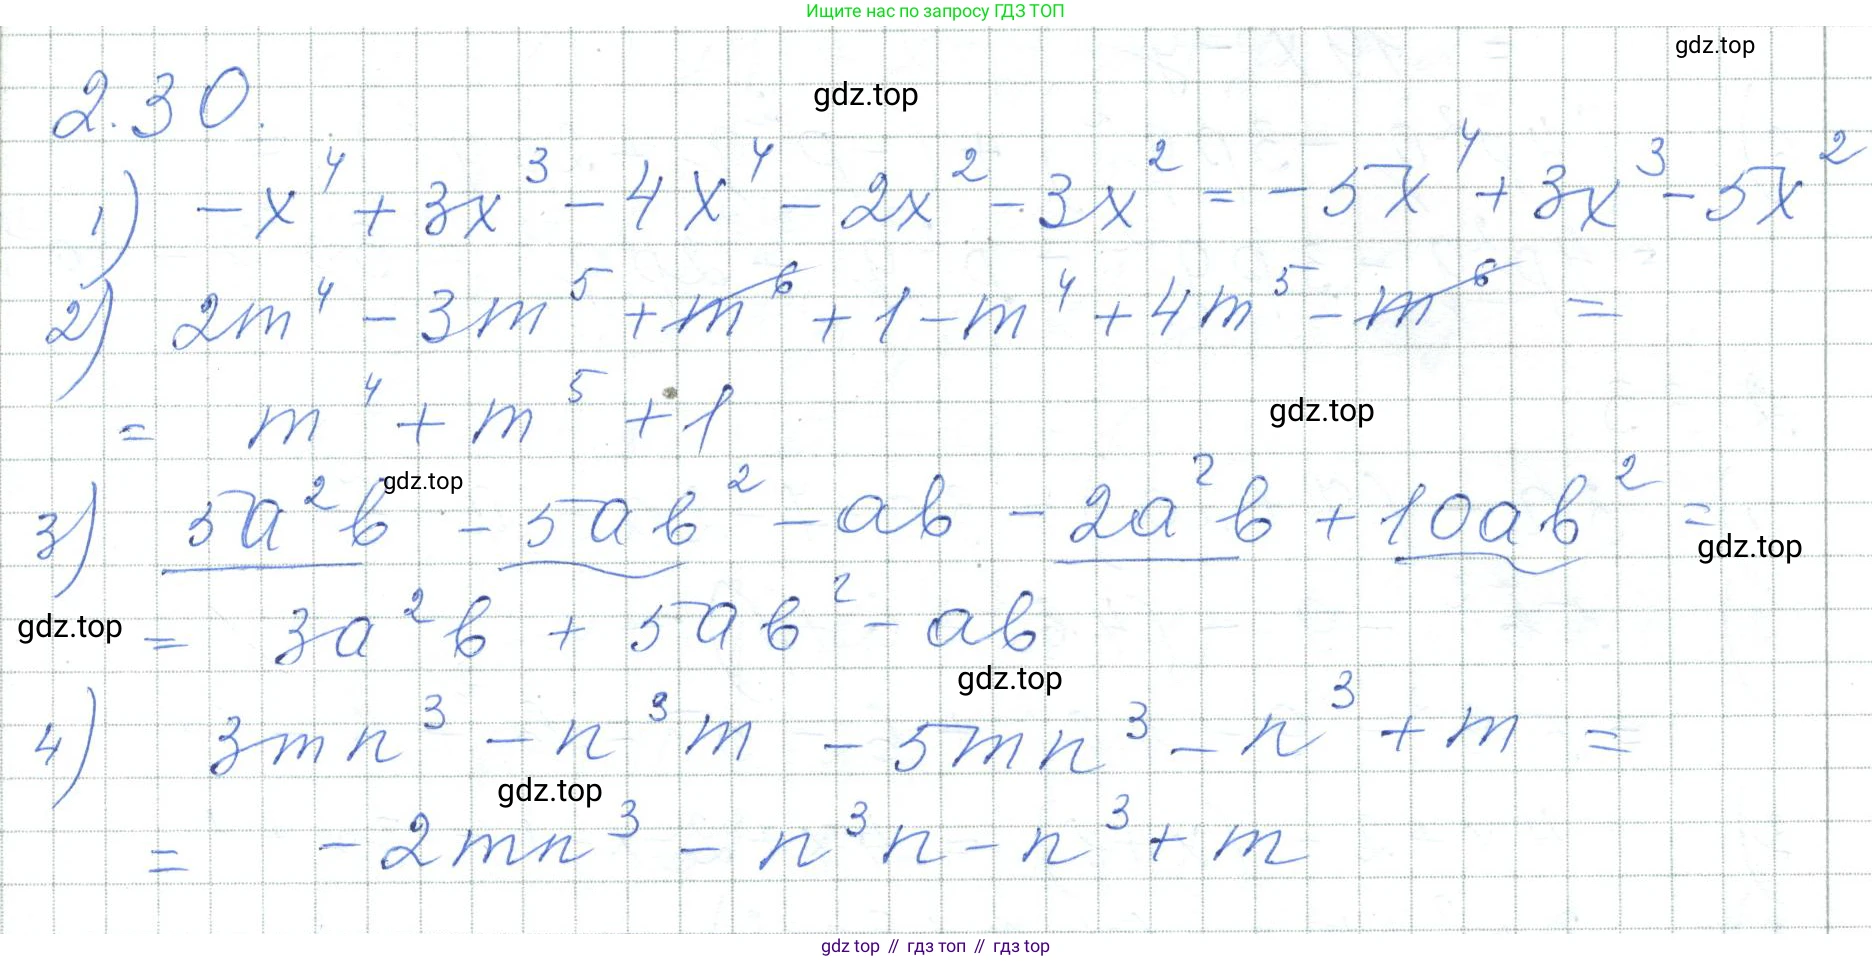 Ищите нас по запросу ГДЗ ТОП
gdz.top
2.30.
gdz.top
1) -x⁴ + 3x³ - 4x⁴ - 2x² - 3x² = -5x⁴ + 3x³ - 5x²
2) 2m⁴ - 3m⁵ + m⁶ + 1 - m⁴ + 4m⁵ - m⁶ =
= m⁴ + m⁵ + 1
gdz.top
gdz.top
3) 5a²b - 5ab² - ab - 2a²b + 10ab² =
gdz.top
gdz.top
= 3a²b + 5ab² - ab
gdz.top
4) 3mn³ - n³m - 5mn³ - n³ + m =
gdz.top
= -2mn³ - n³n - n³ + m
gdz top // гдз топ // гдз top